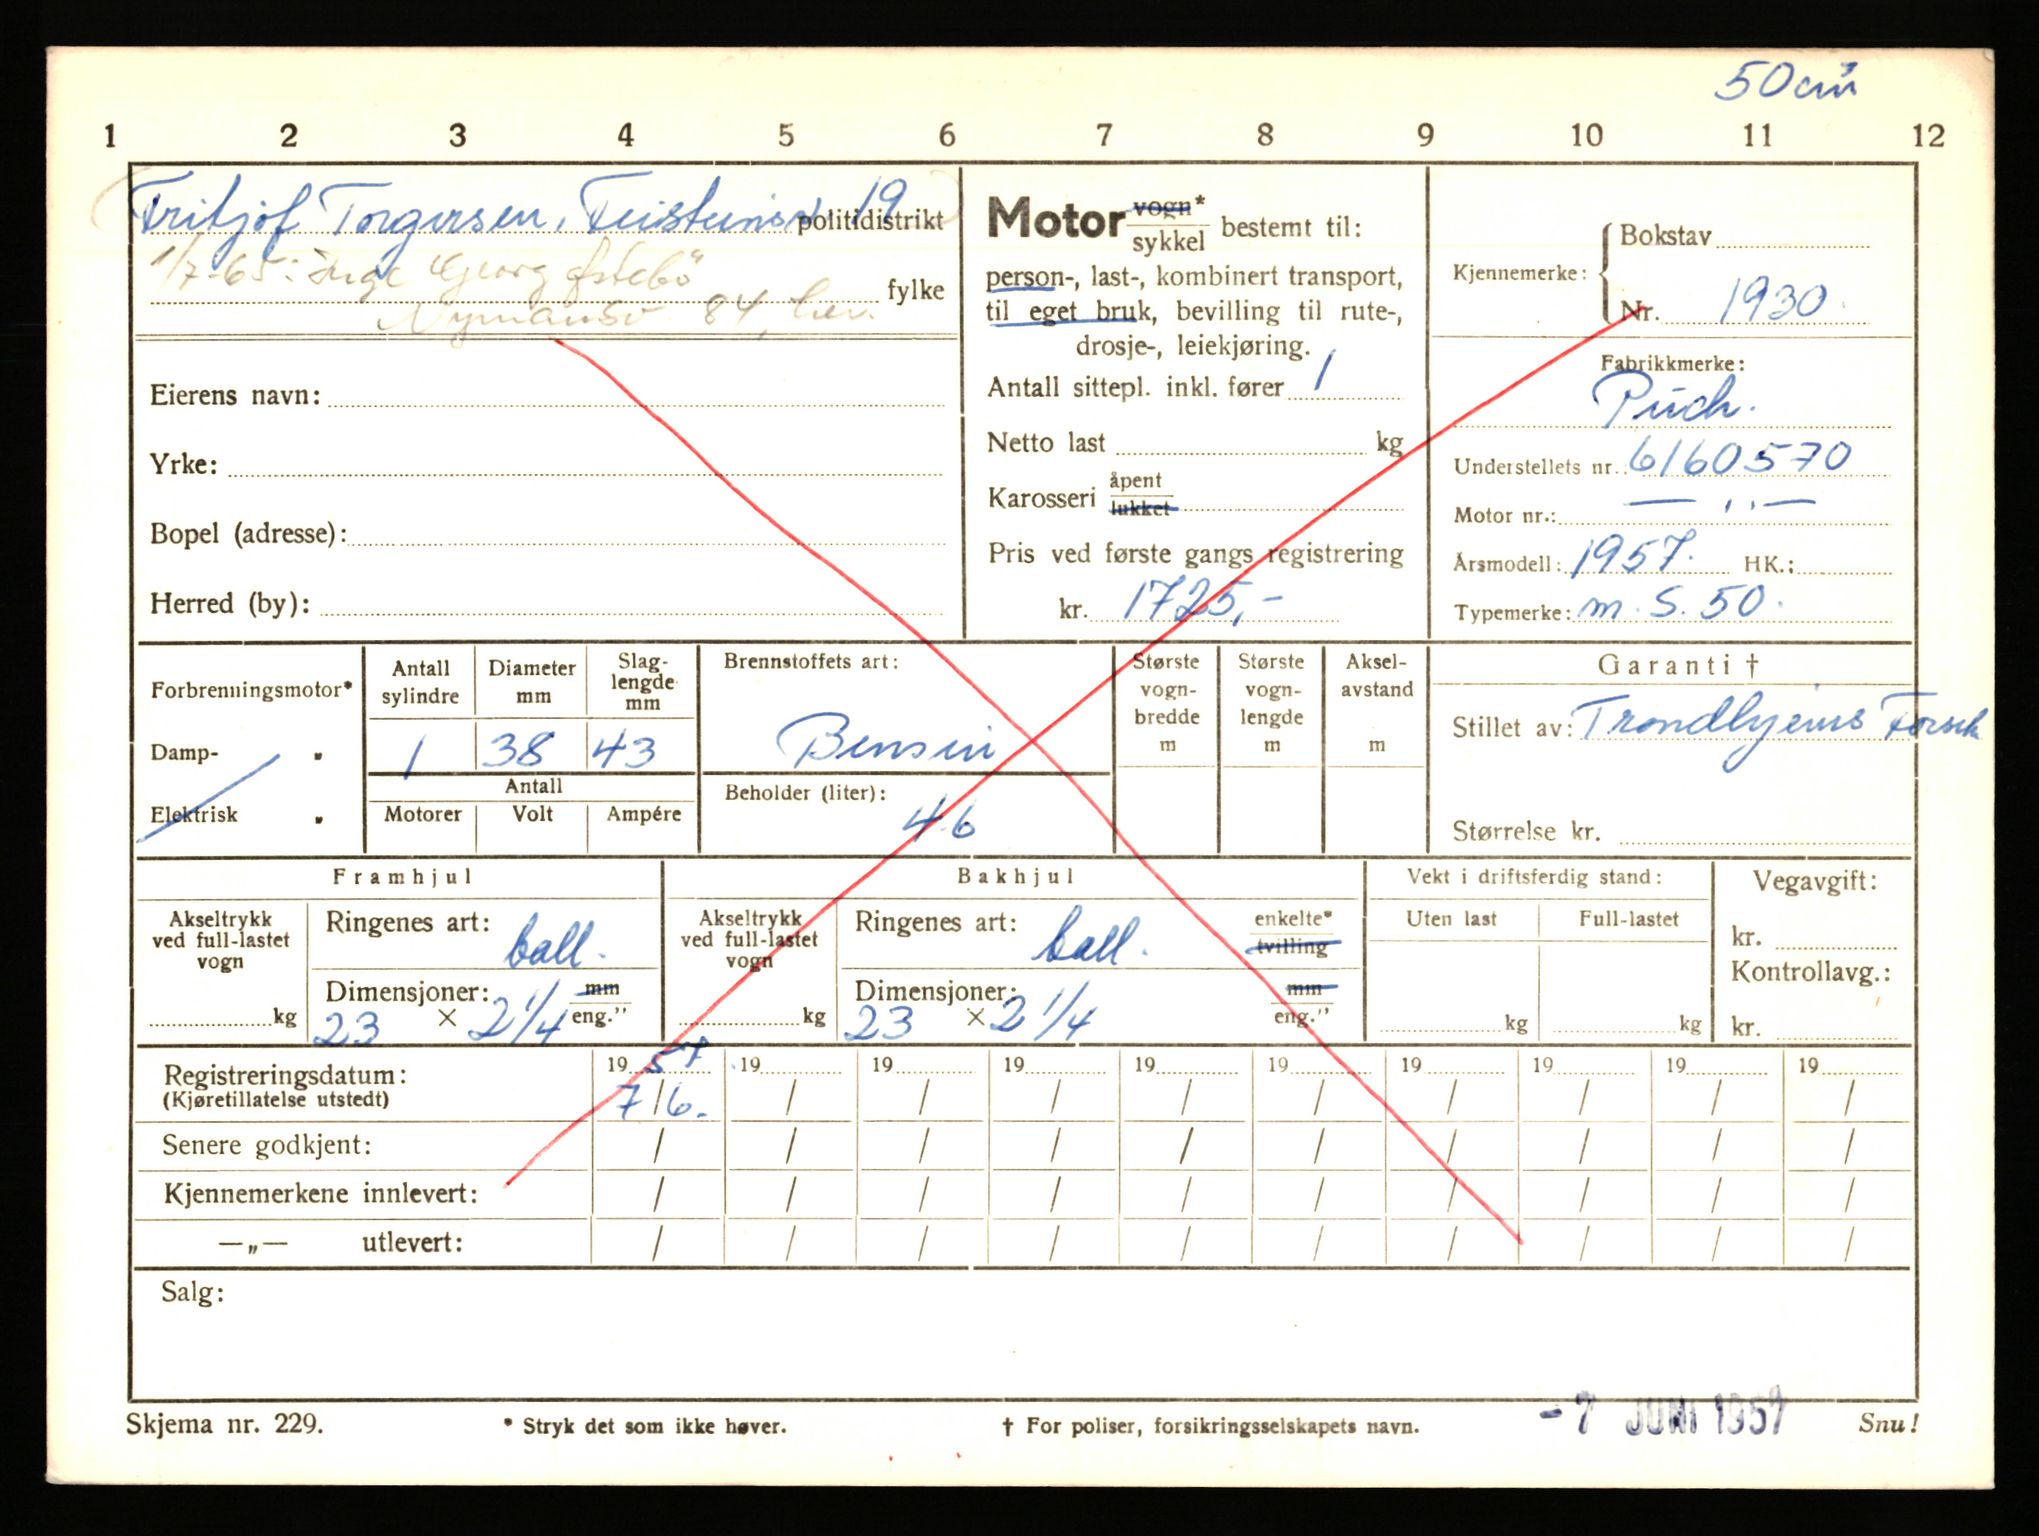 50 cm³
1 2 3 4 5 6 7 8 9 10 11 12
Fritjof Torgersen, Feisteinsv 19 politidistrikt
1/7-65: Inge Georg Østebö
fylke
Nymansv 84, her.
Eierens navn:
Yrke:
Bopel (adresse):
Herred (by):
Motor vogn* sykkel bestemt til:
person-, last-, kombinert transport,
til eget bruk, bevilling til rute-,
drosje-, leiekjøring.
Antall sittepl. inkl. fører 1
Netto last kg
Karosseri åpent lukket
Pris ved første gangs registrering
kr. 1725,-
Kjennemerke: Bokstav
Nr. 1930.
Fabrikkmerke:
Puch.
Understellets nr. 6160570
Motor nr.: — ,, —
Årsmodell: 1957. HK.:
Typemerke: m. S. 50.
Forbrenningsmotor*
Damp- „
Elektrisk „
Antall sylindre
Diameter mm
Slag-lengde mm
1 38 43
Antall
Motorer Volt Ampére
Brennstoffets art:
Bensin
Beholder (liter):
4.6
Største vogn-bredde m
Største vogn-lengde m
Aksel-avstand m
Garanti †
Stillet av: Trondhjems Forsik
Størrelse kr.
Framhjul
Akseltrykk ved full-lastet vogn
kg
Ringenes art: ball.
Dimensjoner: mm
23 × 2 1/4 eng."
Bakhjul
Akseltrykk ved full-lastet vogn
kg
Ringenes art: ball. enkelte* tvilling
Dimensjoner: mm
23 × 2 1/4 eng."
Vekt i driftsferdig stand:
Uten last Full-lastet
kg kg
Vegavgift:
kr.
Kontrollavg.:
kr.
Registreringsdatum: 19 57 19 19 19 19 19 19 19 19 19
(Kjøretillatelse utstedt) 7/6. / / / / / / / / /
Senere godkjent: / / / / / / / / / /
Kjennemerkene innlevert: / / / / / / / / / /
—„— utlevert: / / / / / / / / / /
Salg:
Skjema nr. 229. * Stryk det som ikke høver. † For poliser, forsikringsselskapets navn. -7 JUNI 1957 Snu!